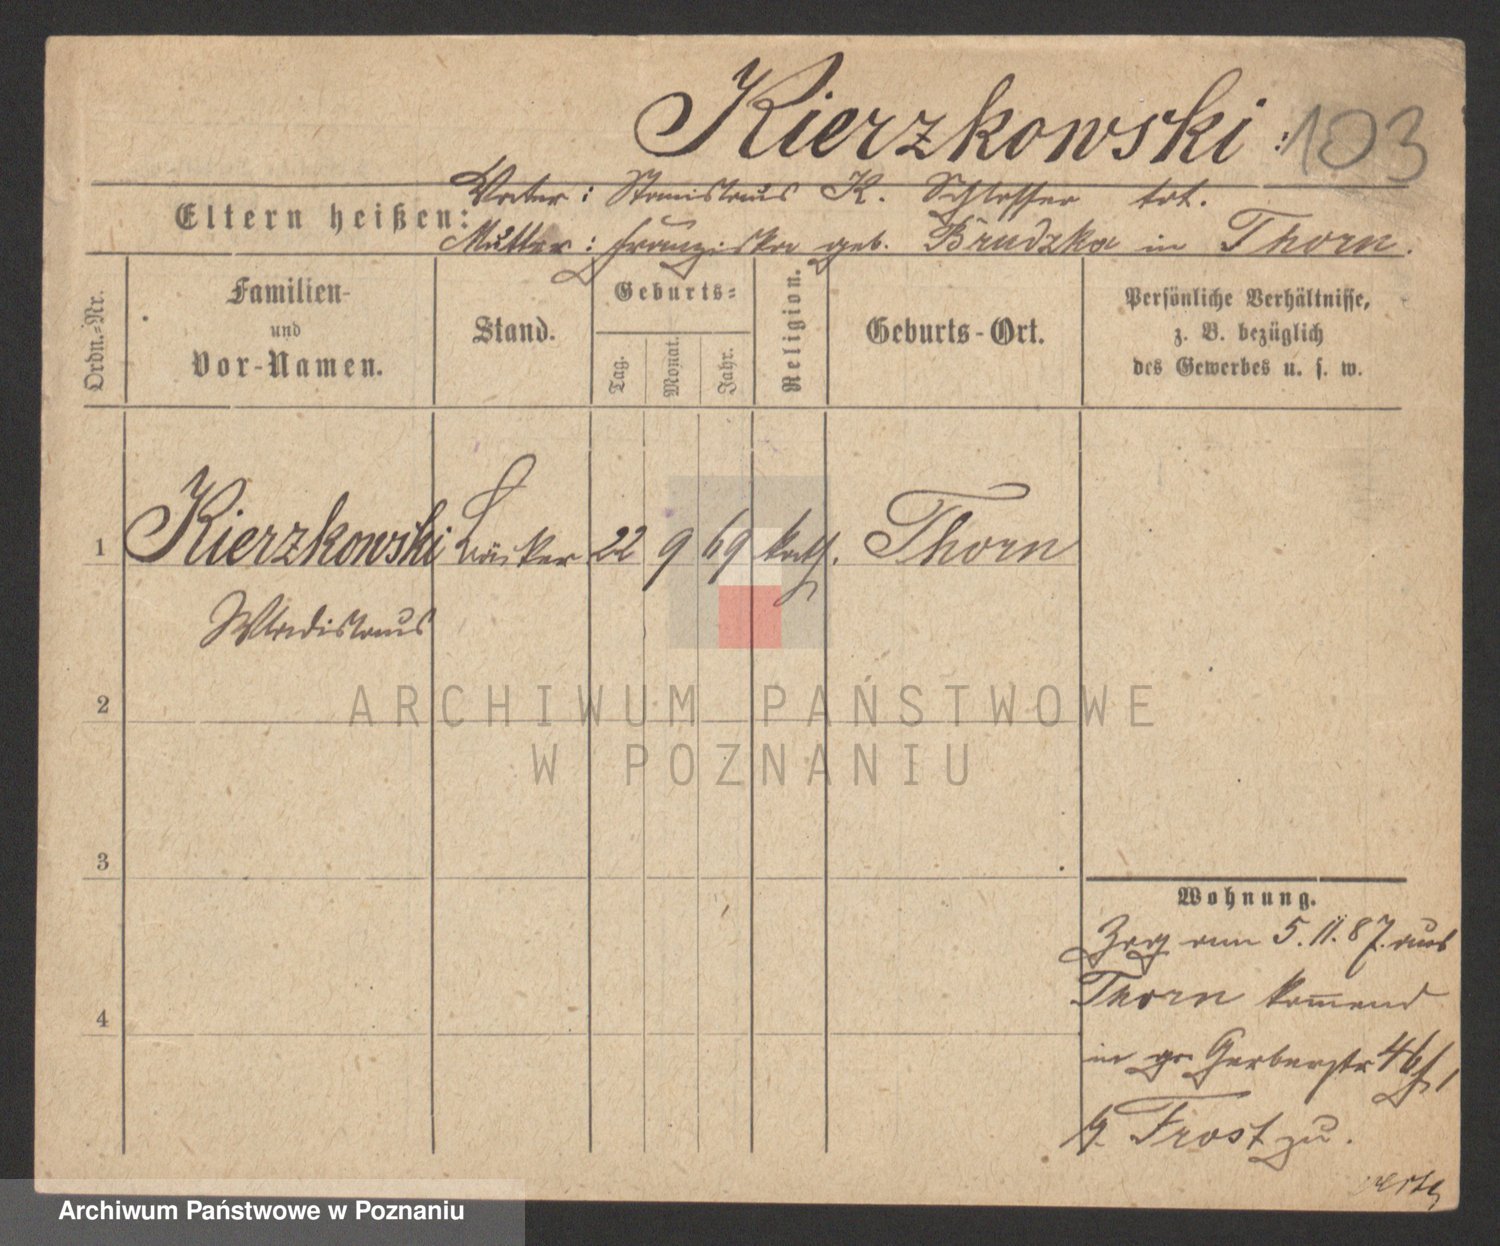 Kierzkowski. 103
Vater: Stanislaus K. Schlosser tot.
Eltern heißen:
Mutter: Franziska geb. Brudzka in Thorn.
Ordn.-Nr.
Familien-
und
Vor-Namen.
Stand.
Geburts-
Tag.
Monat.
Jahr.
Religion.
Geburts-Ort.
Persönliche Verhältnisse,
z. B. bezüglich
des Gewerbes u. s. w.
1 Kierzkowski Bäcker 22 9 69 kath. Thorn
Wladislaus
2
ARCHIWUM PAŃSTWOWE
W POZNANIU
3
4
Wohnung.
Zog am 5.11.87. aus
Thorn kommend
in gr Gerberstr 46
Frost zu.
Archiwum Państwowe w Poznaniu